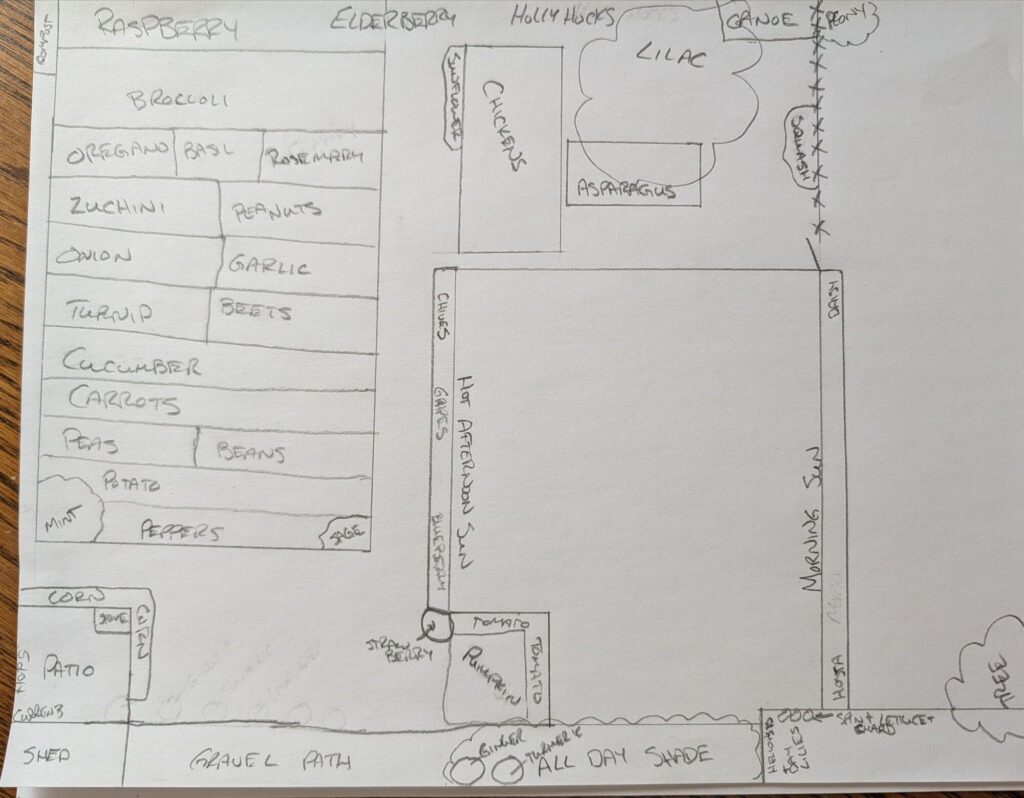 COMPOST
RASPBERRY
ELDERBERRY
HOLLY HOCKS
CANOE
PEONY
LILAC
BROCCOLI
SUNFLOWER
CHICKENS
SQUASH
OREGANO
BASL
ROSEMARY
ASPARAGUS
ZUCHINI
PEANUTS
ONION
GARLIC
TURNIP
BEETS
CHIVES
DAISY
CUCUMBER
CARROTS
GRAPES
HOT AFTERNOON SUN
PEAS
BEANS
MORNING SUN
POTATO
MINT
PEPPERS
SAGE
BLUEBERRY
CORN
STOVE
CORN
PATIO
HOPS
STRAW
BERRY
TOMATO
TOMATO
PUMPKIN
HOSTA
TREE
SPIN + LETTUCE +
CHARD
SHED
GRAVEL PATH
GINGER
TURMERIC
ALL DAY SHADE
DAY
LILLIES